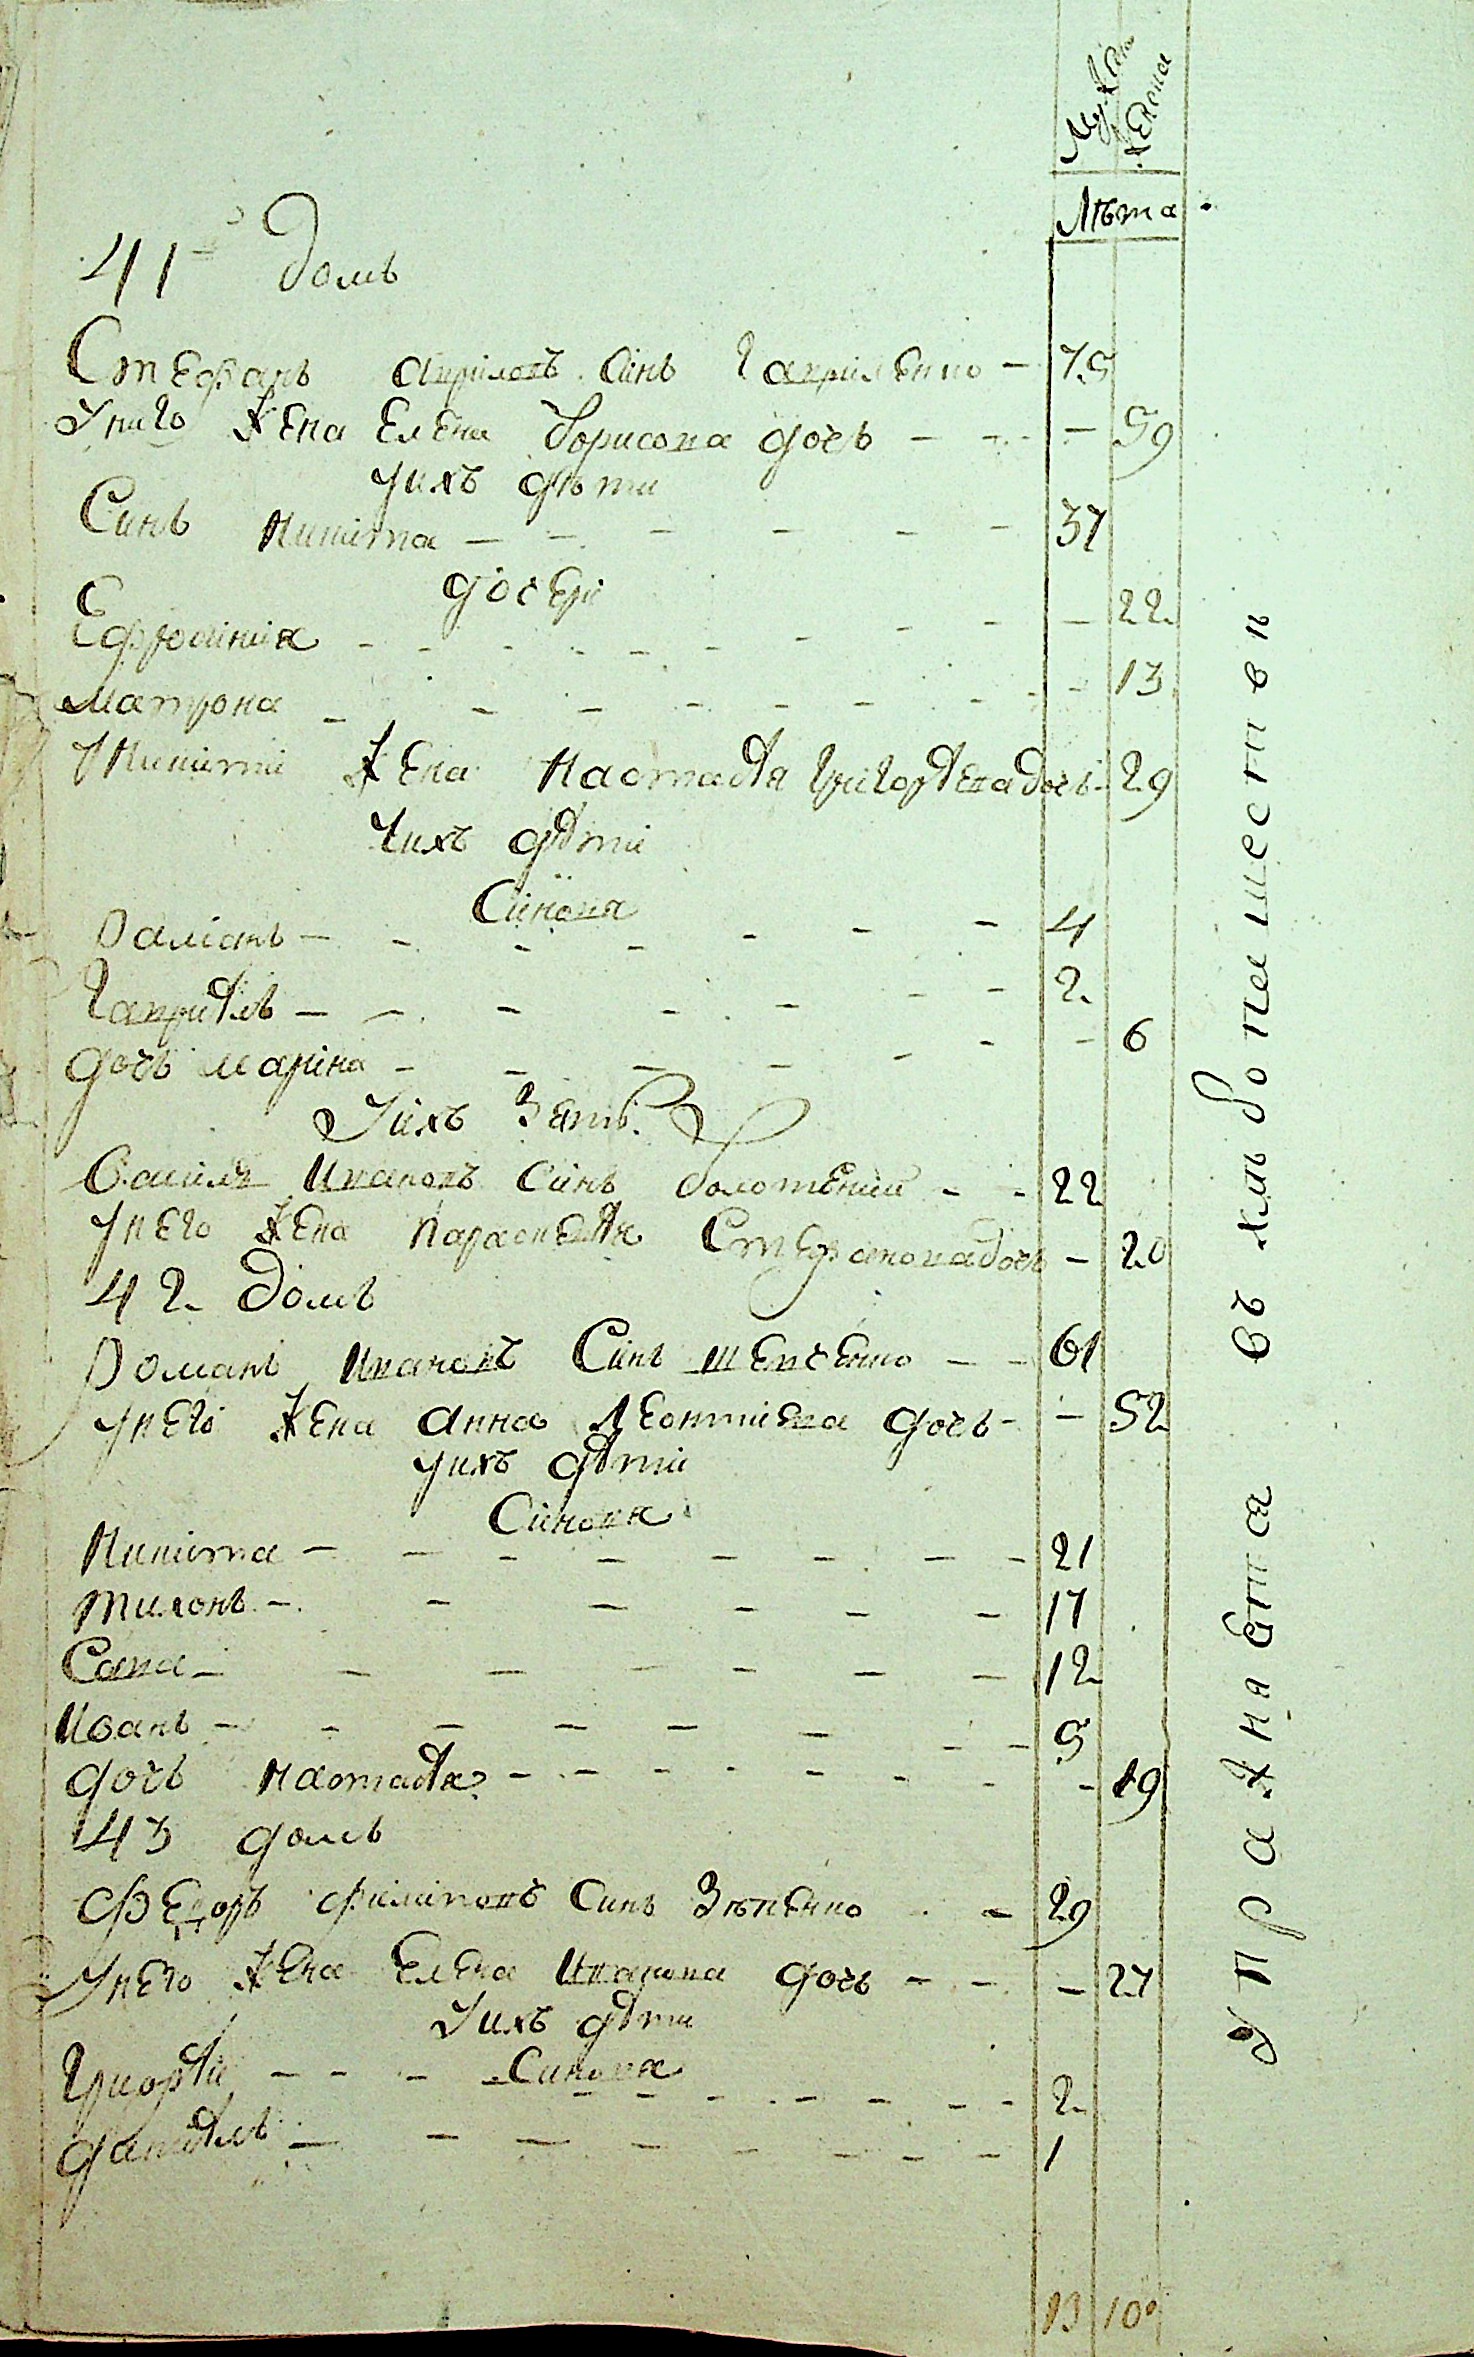 Мужска
Женска
Лѣта
41 домъ
Стефанъ Кириловъ Синъ Гавриленко — 75
У него Жена Елена Борисова дочь — 59
У ихъ дѣти
Синъ Никита — 37
дочери
Ефросиния — 22
Матрона — 13
У Никити Жена Настасія Григоріева дочь — 29
У ихъ діти
Синовя
Даміанъ — 4
Гавріилъ — 2
дочь Марина — 6
У ихъ Зять
Василь Ивановъ Синъ — 22
У него Жена Параскевія Стефанова дочь — 20
42 домъ
Романъ Ивановъ Синъ Шевченко — 61
У него Жена Анна Леонтиева дочь — 52
У ихъ діти
Синовя
Никита — 21
Тихонъ — 17
Сава — 12
Иванъ — 5
дочь Настасія — 19
43 домъ
Федоръ Филиповъ Синъ Зѣненко — 29
У него Жена Елена Иванова дочь — 27
У ихъ діти
Синовя
Григорій — 2
Даніилъ — 1
13 10
Упражняются въ хлѣбопашествѣ